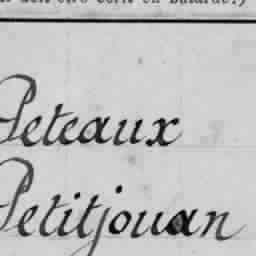 doit être écrit en Bâtarde.)
Peteaux
Petitjouan